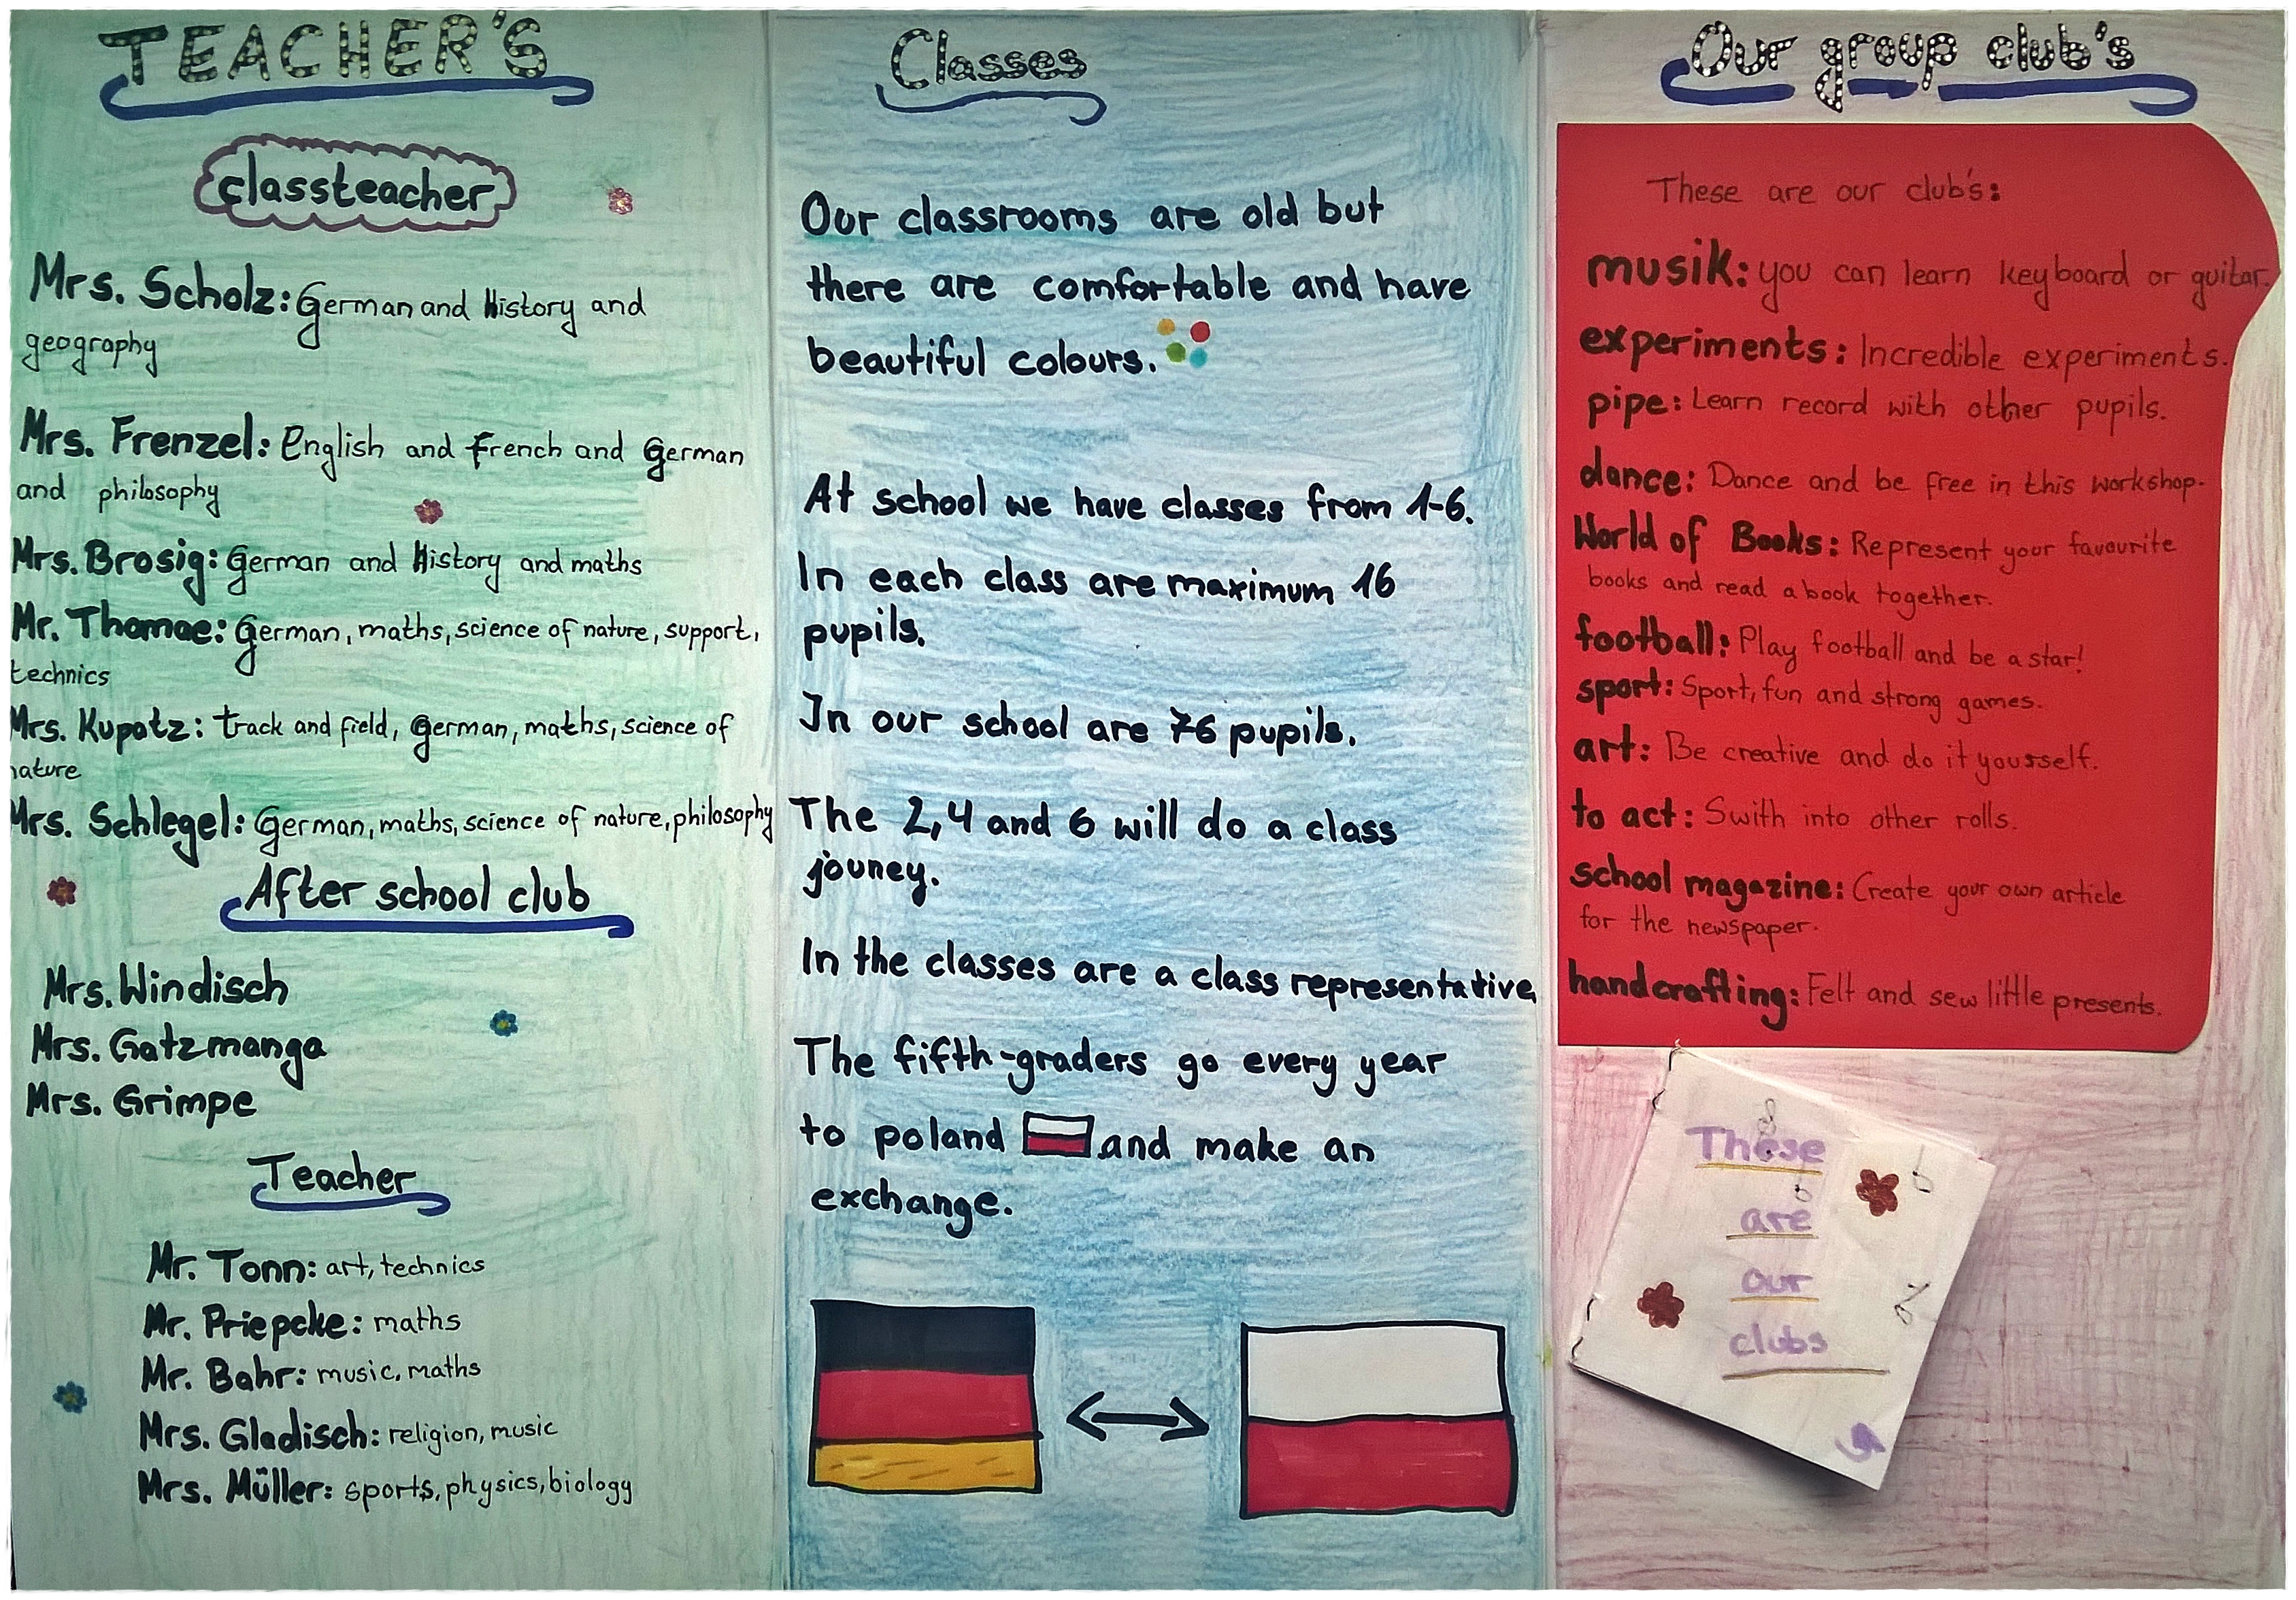 TEACHER'S
classteacher
Mrs. Scholz: German and History and
geography
Mrs. Frenzel: English and french and German
and philosophy
Mrs. Brosig: German and History and maths
Mr. Thomae: German, maths, science of nature, support,
technics
Mrs. Kupatz: track and field, German, maths, science of
nature
Mrs. Schlegel: German, maths, science of nature, philosophy
After school club
Mrs. Windisch
Mrs. Gatzmanga
Mrs. Grimpe
Teacher
Mr. Tonn: art, technics
Mr. Priepcke: maths
Mr. Bahr: music, maths
Mrs. Gladisch: religion, music
Mrs. Müller: sports, physics, biology
Classes
Our classrooms are old but
there are comfortable and have
beautiful colours.
At school we have classes from 1-6.
In each class are maximum 16
pupils.
In our school are 76 pupils.
The 2, 4 and 6 will do a class
jouney.
In the classes are a class representative.
The fifth-graders go every year
to poland and make an
exchange.
Our group club's
These are our club's:
musik: you can learn keyboard or guitar.
experiments: Incredible experiments.
pipe: Learn record with other pupils.
dance: Dance and be free in this workshop.
World of Books: Represent your favourite
books and read a book together.
football: Play football and be a star!
sport: Sport, fun and strong games.
art: Be creative and do it yourself.
to act: Swith into other rolls.
school magazine: Create your own article
for the newspaper.
handcrafting: Felt and sew little presents.
These
are
our
clubs